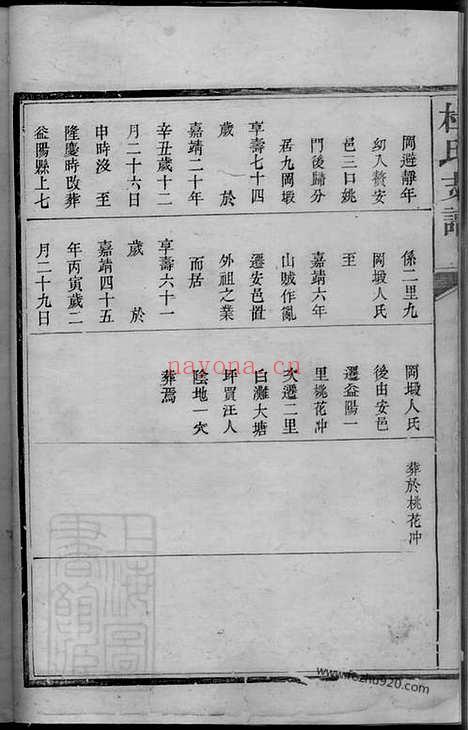 氏支譜
岡避靜年
幼入贅安
邑三口姚
門後歸分
居九岡塅
享壽七十四
歲　於
嘉靖二十年
辛丑歲十二
月二十六日
申時沒　至
隆慶時改葬
益陽縣上七
係二里九
岡塅人氏
至
嘉靖六年
山賊作亂
遷安邑置
外祖之業
而居
享壽六十一
歲　於
嘉靖四十五
年丙寅歲二
月二十九日
岡塅人氏
後由安邑
遷益陽一
里桃花冲
次遷二里
白灘大塘
坪買汪人
陰地一穴
葬焉
葬於桃花冲
nayona.cn
上海圖書館藏
www.fozhu920.com